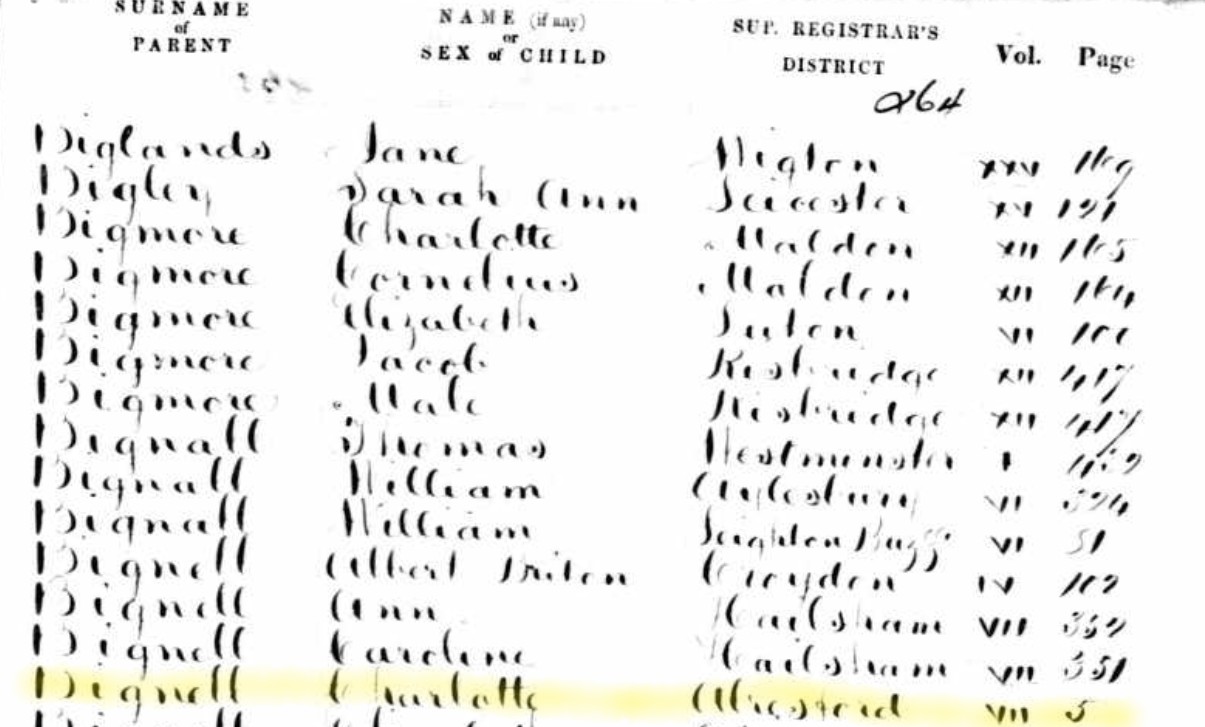 SURNAME of PARENT NAME (if any) or SEX of CHILD SUP. REGISTRAR'S DISTRICT Vol. Page
264
Biglands Jane Wigton XXV 169
Bigley Sarah Ann Leicester XV 121
Bigmore Charlotte Maldon XII 165
Bigmore Cornelius Maldon XII 164
Bigmore Elizabeth Luton VI
Bigmore Jacob Risbridge XII 417
Bigmore Male Risbridge XII 417
Bignall Thomas Westminster I
Bignall William Aylesbury VI 324
Bignall William Leighton Buzz VI 51
Bignell Albert Briton Croydon IV 102
Bignell Ann Hailsham VII
Bignell Caroline Hailsham VII 351
Bignell Charlotte Alresford VII 5